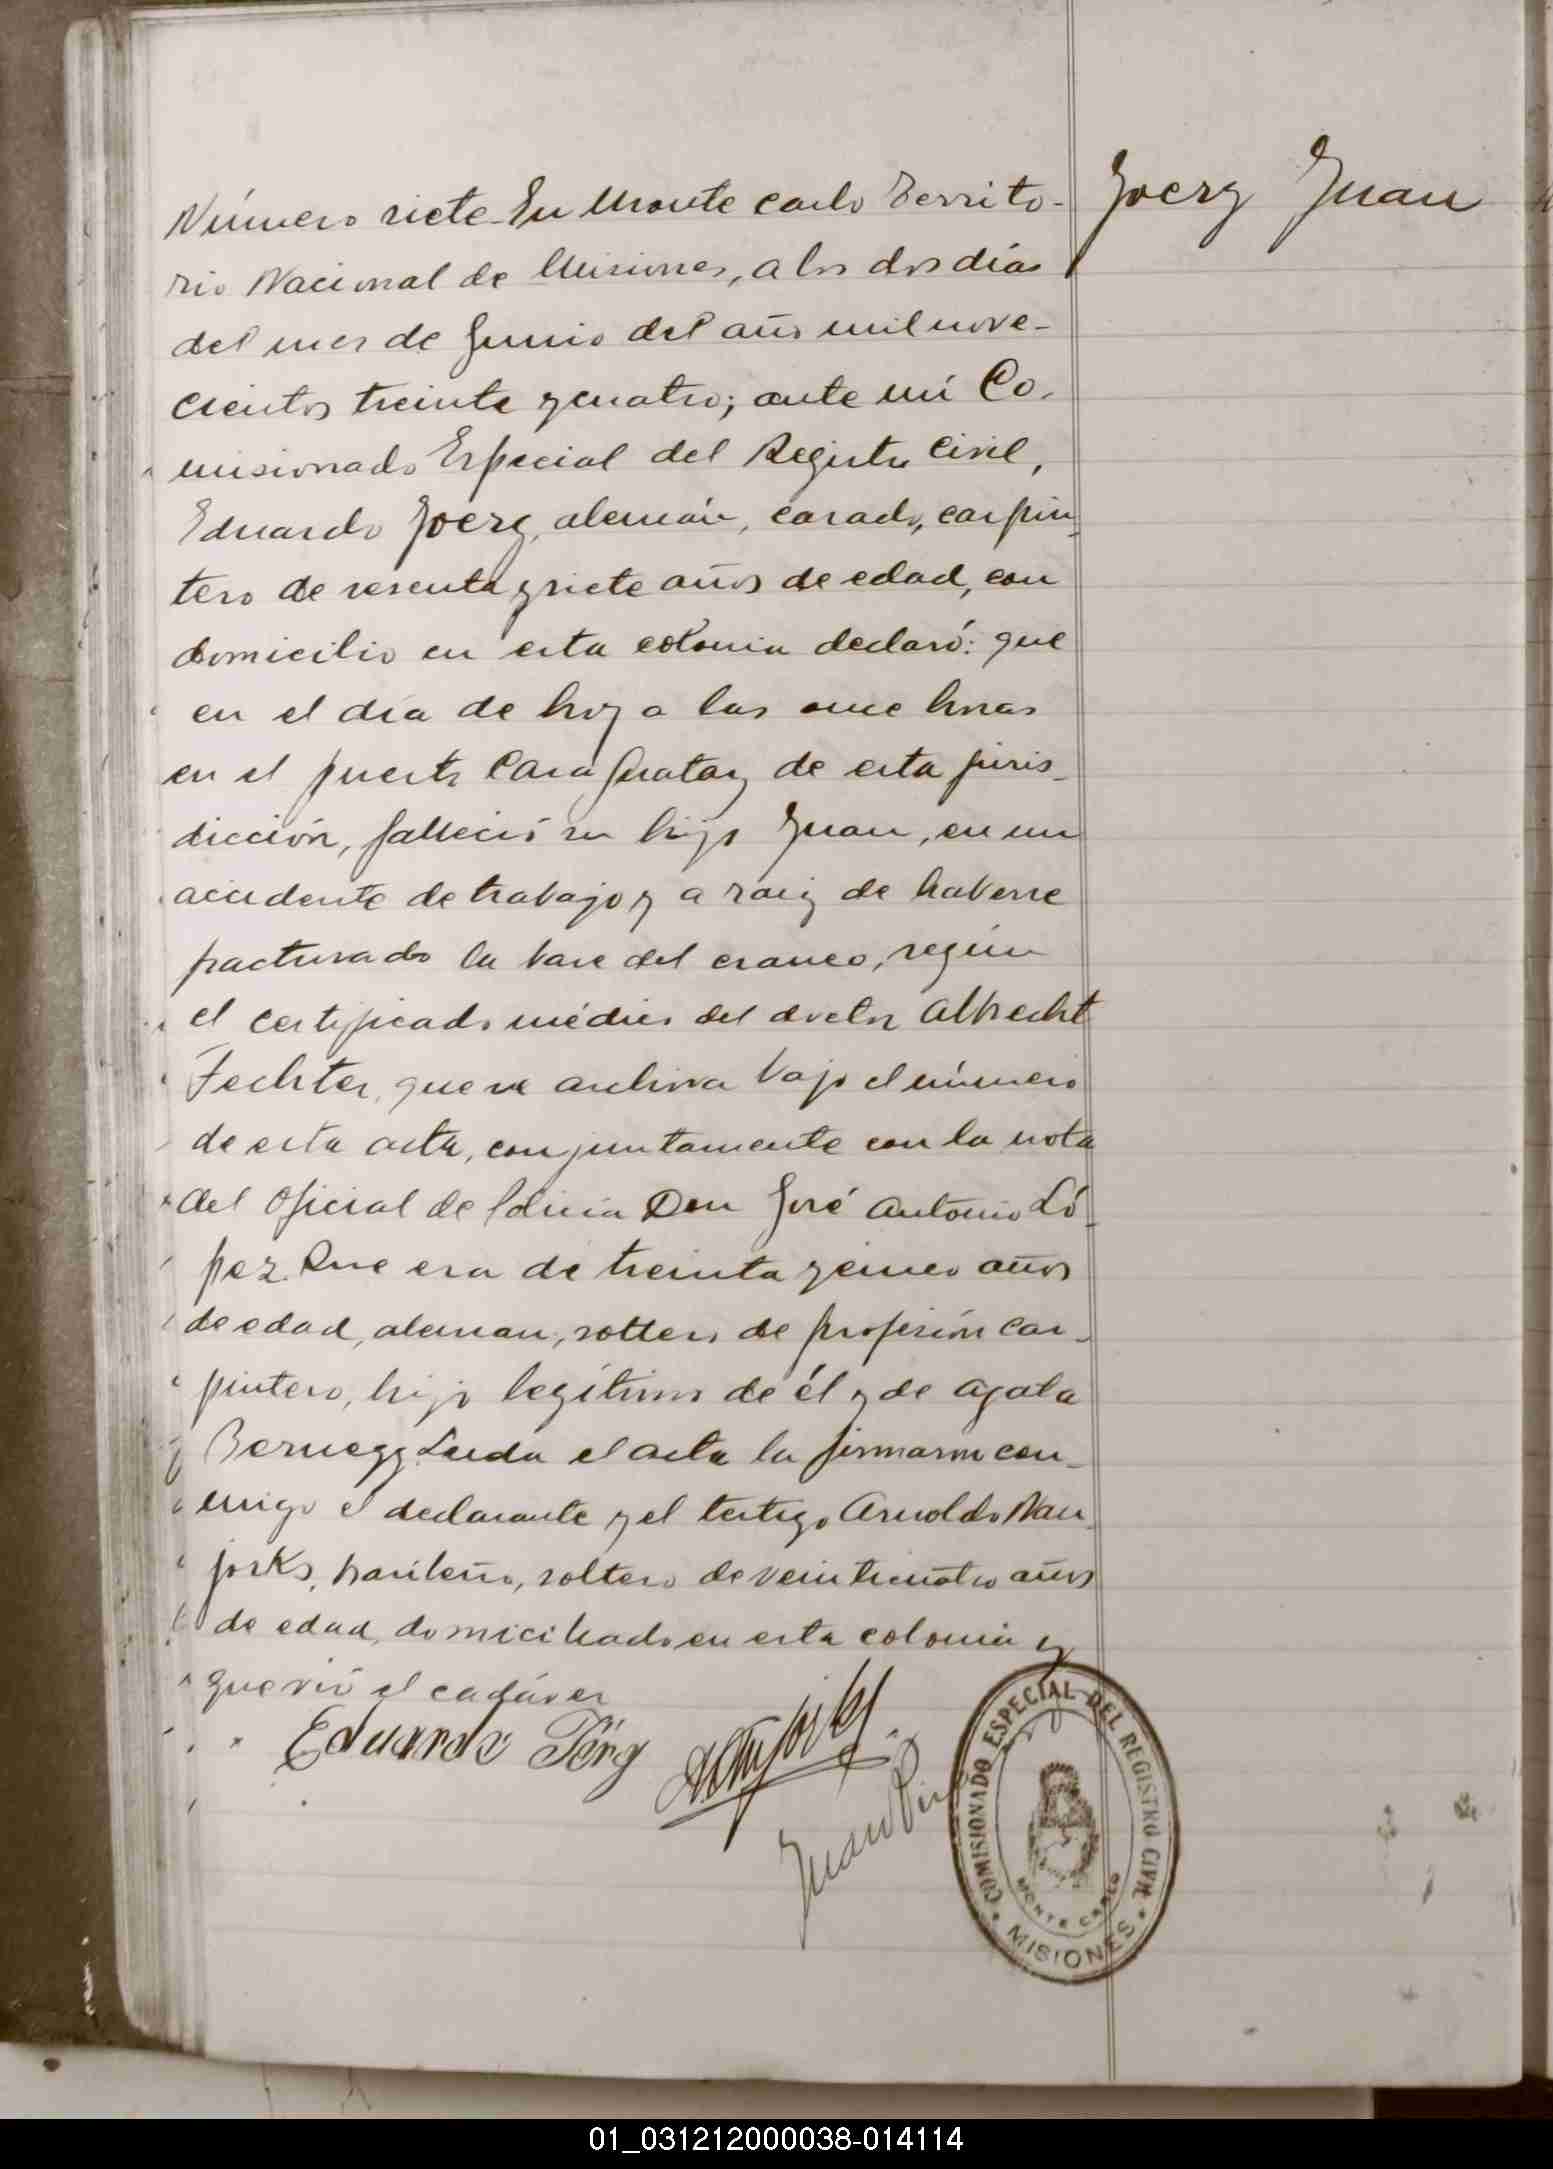 Joerg Juan
Número siete. En Monte Carlo Territo-
rio Nacional de Misiones, a los dos días
del mes de Junio del año mil nove-
cientos treinta y cuatro; ante mí Co-
misionado Especial del Registro Civil,
Eduardo Joerg, alemán, casado, carpin-
tero de sesenta y siete años de edad, con
domicilio en esta colonia declaró: que
en el día de hoy a las once horas
en el puerto Caraguatay de esta juris-
dicción, falleció su hijo Juan, en un
accidente de trabajo y a raiz de haberse
fracturado la base del craneo, según
el certificado médico del doctor Albrecht
Fechter, que se archiva bajo el número
de esta acta, conjuntamente con la nota
del Oficial de Policia Don José Antonio Ló-
pez. Que era de treinta y cinco años
de edad, aleman, soltero de profesión car-
pintero, hijo legítimo de él y de Agata
Bernegg. Leida el acta la firmaron con-
migo el declarante y el testigo Arnoldo Nau-
jorks, brasileño, soltero de veinticuatro años
de edad, domiciliado en esta colonia y
que vió el cadáver
Eduardo Jörg
Juan
COMISIONADO ESPECIAL DEL REGISTRO CIVIL
MONTE CARLO
MISIONES
01_031212000038-014114